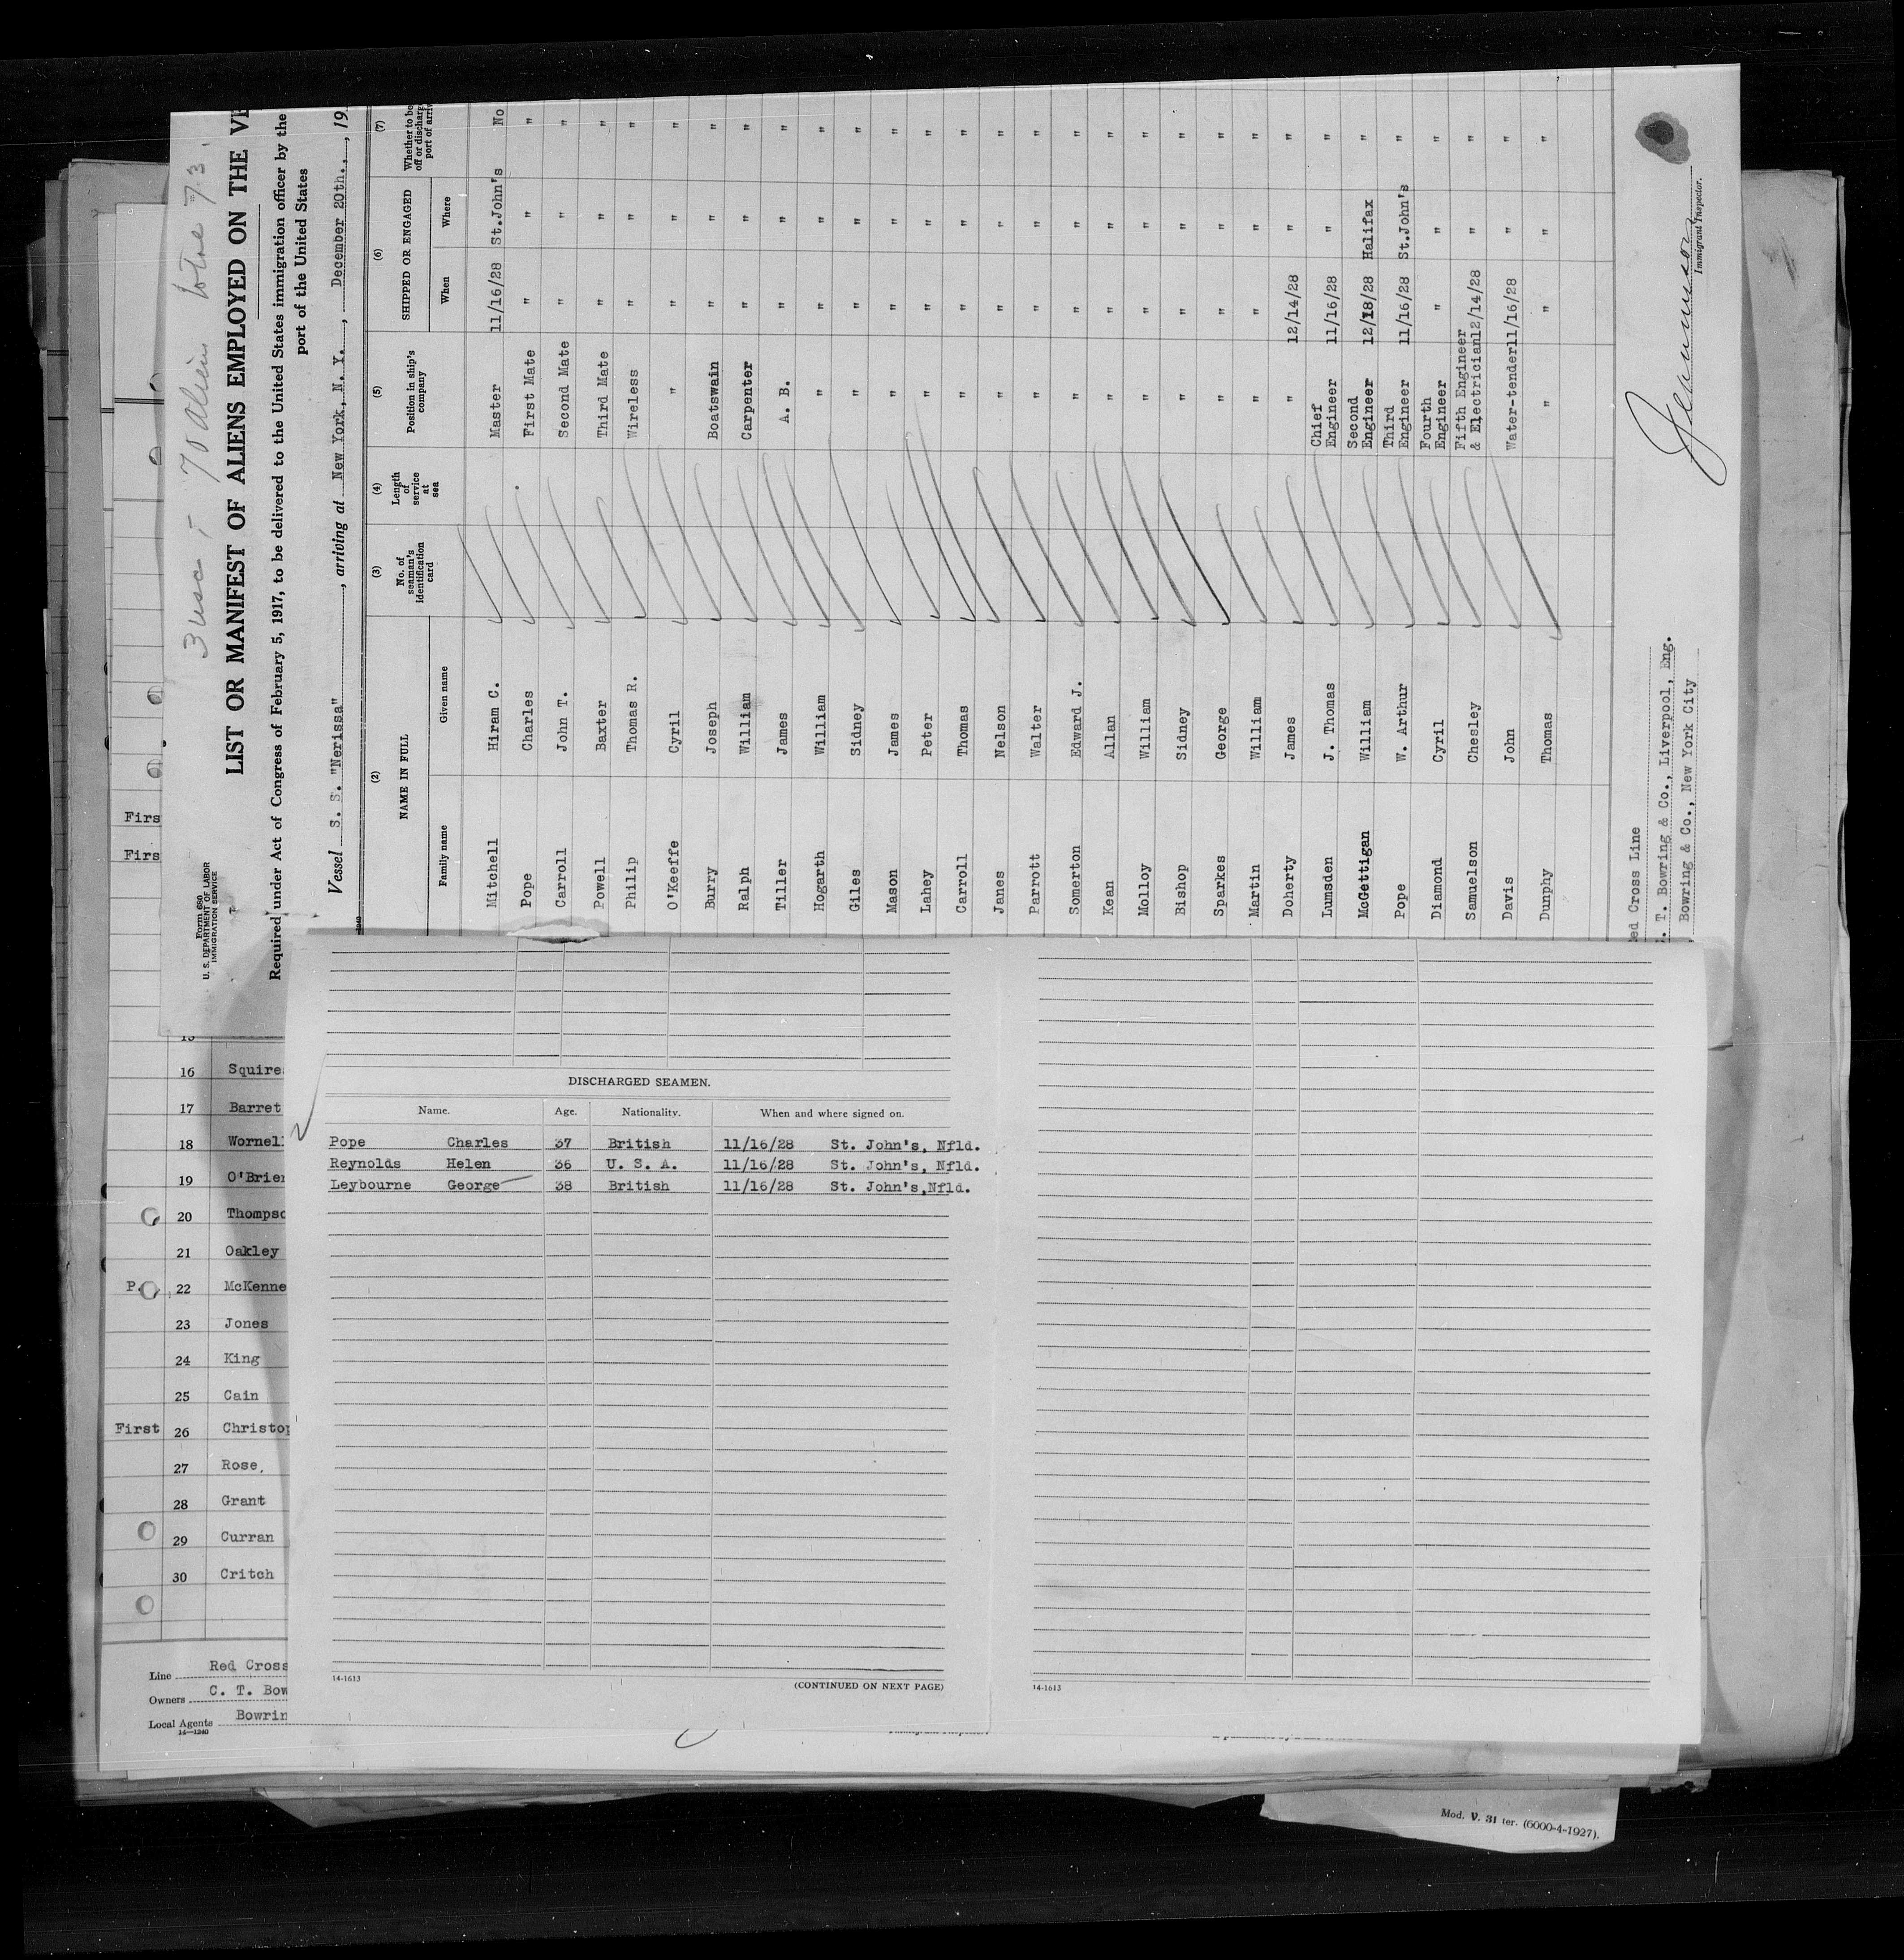 3 usa - 70 alien total 73.
Form 680
U. S. DEPARTMENT OF LABOR
IMMIGRATION SERVICE
LIST OR MANIFEST OF ALIENS EMPLOYED ON THE
Required under Act of Congress of February 5, 1917, to be delivered to the United States immigration officer by the
port of the United States
Vessel S. S. "Nerissa", arriving at New York, N. Y., December 20th., 19
(2) (3) (4) (5) (6) (7)
NAME IN FULL No. of seaman's identification card Length of service at sea Position in ship's company SHIPPED OR ENGAGED Whether to be
off or discharg
port of arriv
Family name Given name When Where
Mitchell Hiram C. Master 11/16/28 St.John's No
Pope Charles First Mate " " "
Carroll John T. Second Mate " " "
Powell Baxter Third Mate " " "
Philip Thomas R. Wireless " " "
O'Keeffe Cyril " " " "
Burry Joseph Boatswain " " "
Ralph William Carpenter " " "
Tiller James A. B. " " "
Hogarth William " " " "
Giles Sidney " " " "
Mason James " " " "
Lahey Peter " " " "
Carroll Thomas " " " "
Janes Nelson " " " "
Parrott Walter " " " "
Somerton Edward J. " " " "
Kean Allan " " " "
Molloy William " " " "
Bishop Sidney " " " "
Sparkes George " " " "
Martin William " " " "
Doherty James " 12/14/28 " "
Lumsden J. Thomas Chief Engineer 11/16/28 " "
McGettigan William Second Engineer 12/18/28 Halifax "
Pope W. Arthur Third Engineer 11/16/28 St.John's "
Diamond Cyril Fourth Engineer " " "
Samuelson Chesley Fifth Engineer & Electrician 12/14/28 " "
Davis John Water-tender 11/16/28 " "
Dunphy Thomas " " " "
ed Cross Line
. T. Bowring & Co., Liverpool, Eng.
Bowring & Co., New York City
Immigrant Inspector.
Firs
Firs
16 Squire
17 Barret
18 Wornell
19 O'Brien
20 Thompso
21 Oakley
P. 22 McKenne
23 Jones
24 King
25 Cain
First 26 Christop
27 Rose,
28 Grant
29 Curran
30 Critch
Line Red Cross
Owners C. T. Bow
Local Agents Bowrin
14-1240
DISCHARGED SEAMEN.
Name. Age. Nationality. When and where signed on.
Pope Charles 37 British 11/16/28 St. John's, Nfld.
Reynolds Helen 36 U. S. A. 11/16/28 St. John's, Nfld.
Leybourne George 38 British 11/16/28 St. John's,Nfld.
14-1613 (CONTINUED ON NEXT PAGE)
14-1613
Mod. V. 31 ter. (6000-4-1927).